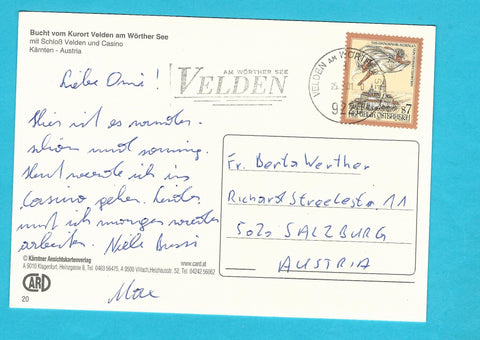 Bucht vom Kurort Velden am Wörther See
mit Schloß Velden und Casino
Kärnten - Austria
Liebe Omi!
Hier ist es
schön und sonnig.
Heut werde ich ins
Casino gehen. Leider
muß ich morgen wieder
arbeiten. Viele Bussi
Max
© Kärntner Ansichtskartenverlag
A 9010 Klagenfurt, Heinzgasse 8, Tel. 0463 56475, A 9500 Villach, Heizhausstr. 52, Tel. 04242 56062
www.card.at
CARD
20
AM WÖRTHER SEE
VELDEN
VELDEN AM WÖRTH
S7
REPUBLIK ÖSTERREICH
Fr. Berta Werther
Richard Strelestr. 11
5020 SALZBURG
AUSTRIA